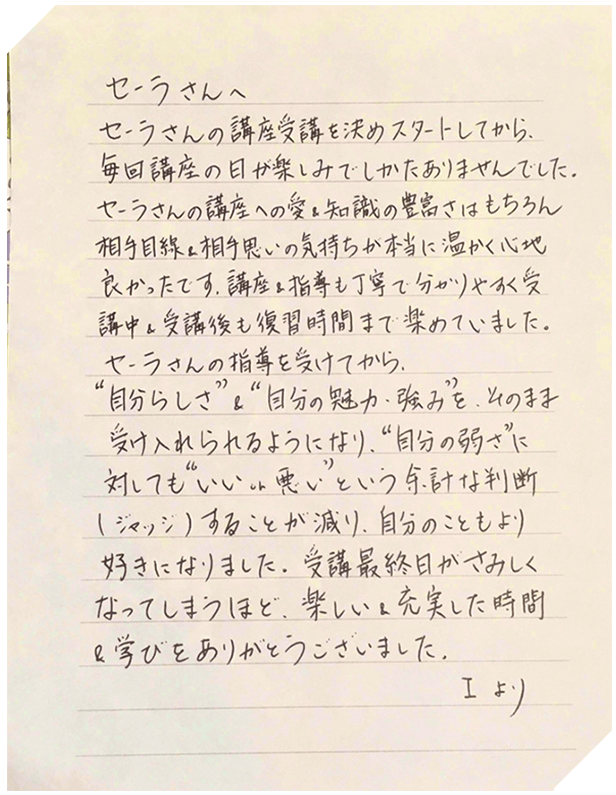 セーラさんへ
セーラさんの講座受講を決めスタートしてから、
毎回講座の日が楽しみでしかたありませんでした。
セーラさんの講座への愛&知識の豊富さはもちろん
相手目線&相手思いの気持ちが本当に温かく心地
良かったです。講座&指導も丁寧で分かりやすく受
講中&受講後も復習時間まで楽めていました。
セーラさんの指導を受けてから、
“自分らしさ”&“自分の魅力・強み”を、そのまま
受け入れられるようになり、“自分の弱さ”に
対しても“いい or 悪い”という余計な判断
(ジャッジ)することが減り、自分のこともより
好きになりました。受講最終日がさみしく
なってしまうほど、楽しい&充実した時間
&学びをありがとうございました。
I より